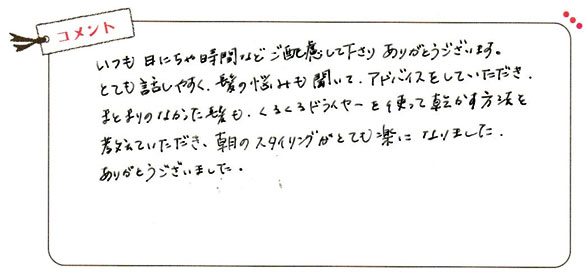 コメント
いつも日にちや時間などご配慮して下さりありがとうございます。
とても話しやすく、髪の悩みも聞いて、アドバイスをしていただき、
まとまりのなかった髪も、くるくるドライヤーを使って乾かす方法を
教えていただき、朝のスタイリングがとても楽になりました。
ありがとうございました。